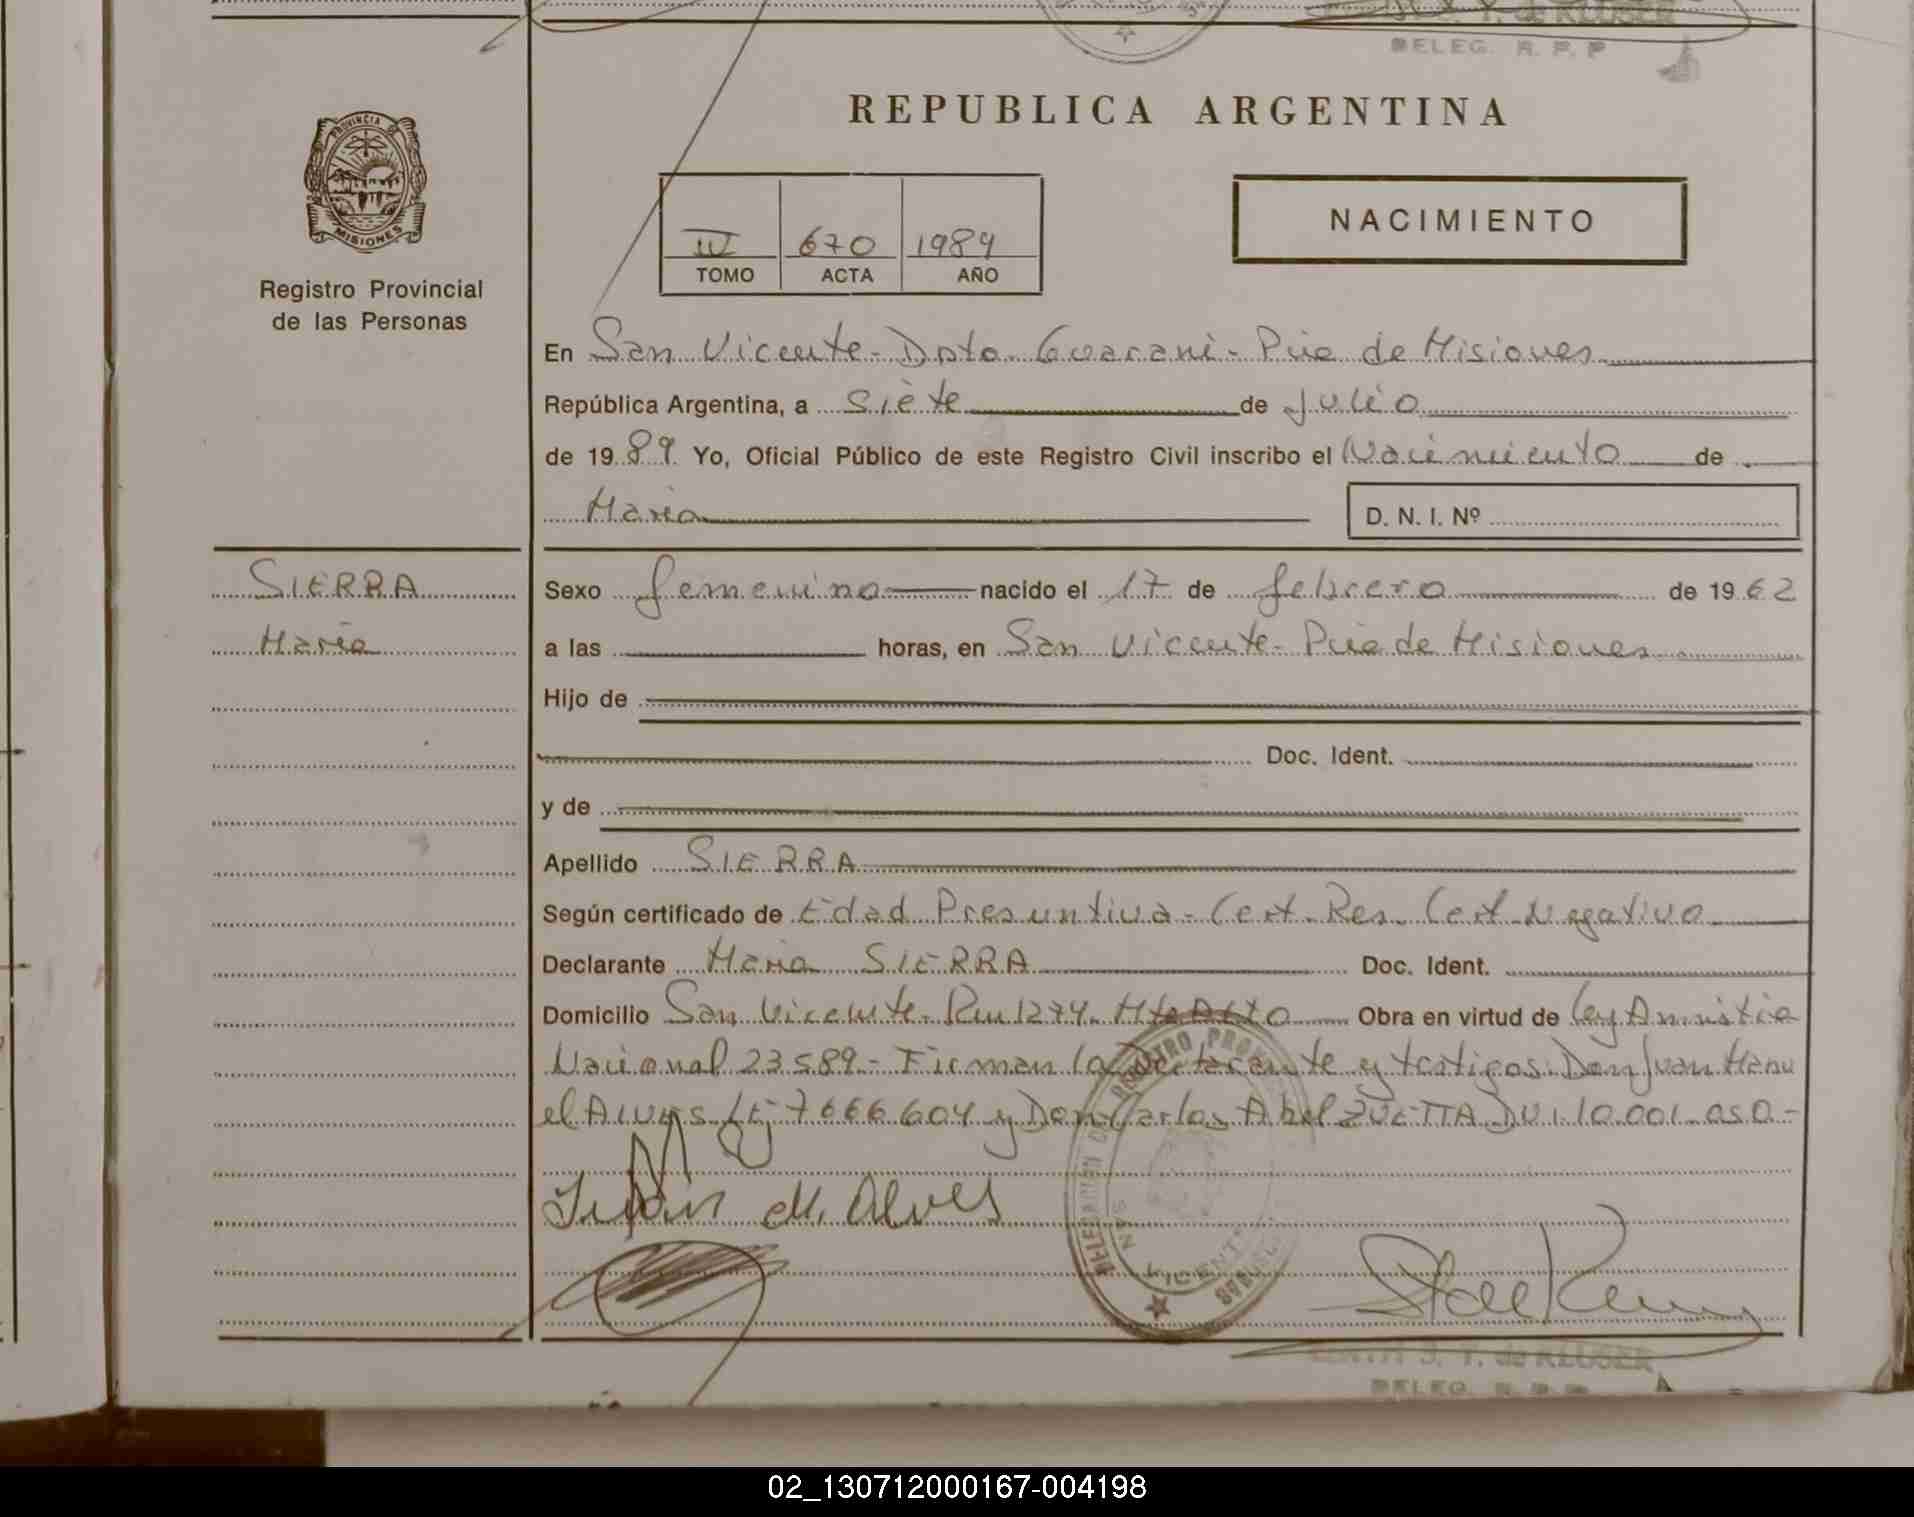 DELEG. R. P. P
REPUBLICA ARGENTINA
PROVINCIA DE
MISIONES
Registro Provincial
de las Personas
IV 670 1989
TOMO ACTA AÑO
NACIMIENTO
En San Vicente - Dpto Guaraní - Pcia de Misiones
República Argentina, a siete de Julio
de 1989 Yo, Oficial Público de este Registro Civil inscribo el Nacimiento de
Maria D. N. I. Nº
SIERRA
Maria
Sexo femenino nacido el 17 de febrero de 1962
a las horas, en San Vicente - Pcia de Misiones
Hijo de
Doc. Ident.
y de
Apellido SIERRA
Según certificado de Edad Presuntiva - Cert. Res. Cert Negativo
Declarante Maria SIERRA Doc. Ident.
Domicilio San Vicente - Km 1274 - Hto ALTO Obra en virtud de Ley Amnistia
Nacional 23.589 - Firman la Declarante y testigos: Don Juan Manu
el Alves LE 7.666.604 y Don Carlos Abel ZUETTA DNI 10.001.050 -
Juan M. Alves
SAN VICENTE
MISIONES
J. T. de KLUSER
DELEG. R. P. P.
02_130712000167-004198